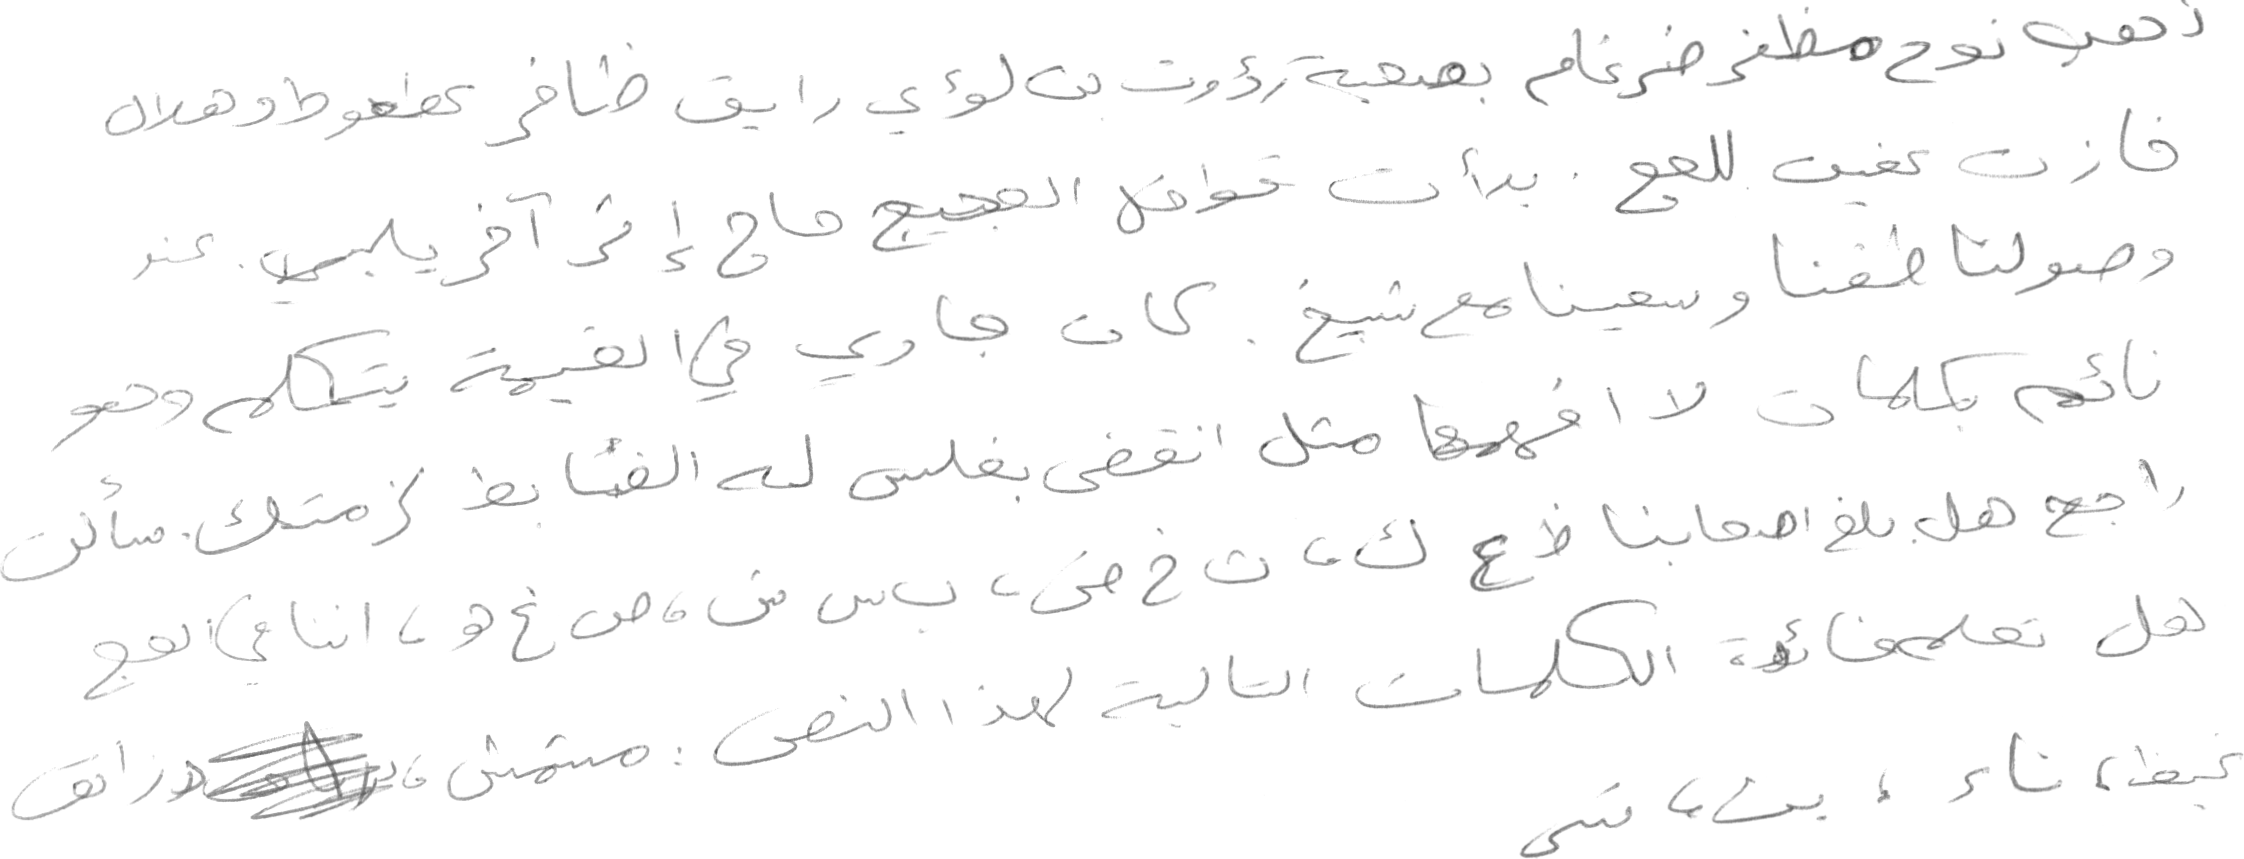 ذهب نوح مظفر ضرغام بصحبة رؤوف بن لؤي رايق ظافر عطعوط وهلال
مازن عفيف للحج. بدأت قوافل الحجيج حاج إثر آخر يلبي. عند
وصولنا طفنا وسعينا مع شيخ. كان جاري في الخيمة يتكلم وهو
نائم بكلمات لا افهمها مثل انقض بغلس له الضابط لزمتك. سألن
راجح هل بلغ اصحابنا ظ ع ك، ث خ ض، ب س ش، ص غ ه، اننا في الحج
هل تعلم فائدة الكلمات التالية لهذا النص: مشمش، دزانق
غيظ، ناء، بئ، شئ